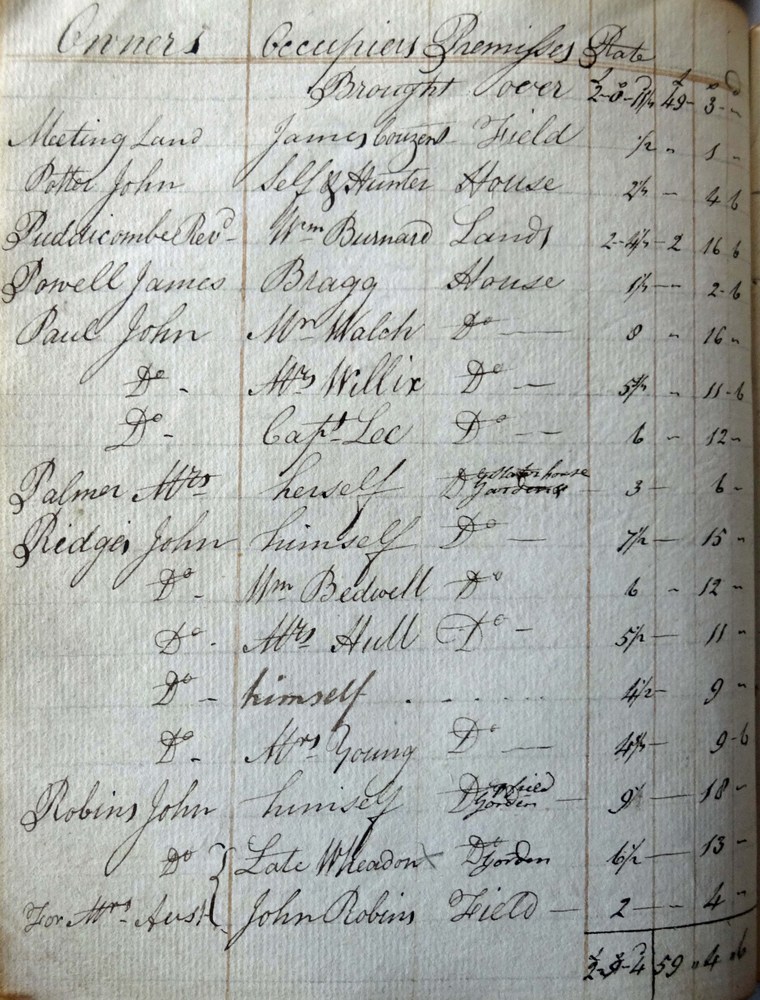 Owners Occupiers Premisses Rate
Brought over £ s d £ s d
2-0-11½ 49-3-"
Meeting Land James Couzens Field ½ " 1 "
Potter John Self & Hunter House 2½ - 4 6
Puddicombe Revd - Wm Burnard Lands 2- - 2 16 6
Powell James Bragg House - 2-6
Paul John Mr Walch Do - 8 " 16 -
Do - Mrs Willix Do - " 11-6
Do - Capt Lee Do - - 6 " 12 -
Palmer Mrs herself Do & Slater house Gardens 3 - 6 -
Ridges John himself Do - 7½ - 15 -
Do - Wm Bedwell Do 6 " 12 -
Do - Mrs Hull Do - 5½ - 11 "
Do - himself . . . . . 4½ - 9 "
Do - Mrs Young Do - - 9-6
Robins John himself Do & field Gorden - 9 - 18 -
Do { Late Wheadon x Do Gorden 6½ - 13 -
For Mrs Aust John Robins Field - 2 - 4 "
£ s d
2-9-4 59 " 4 " 6